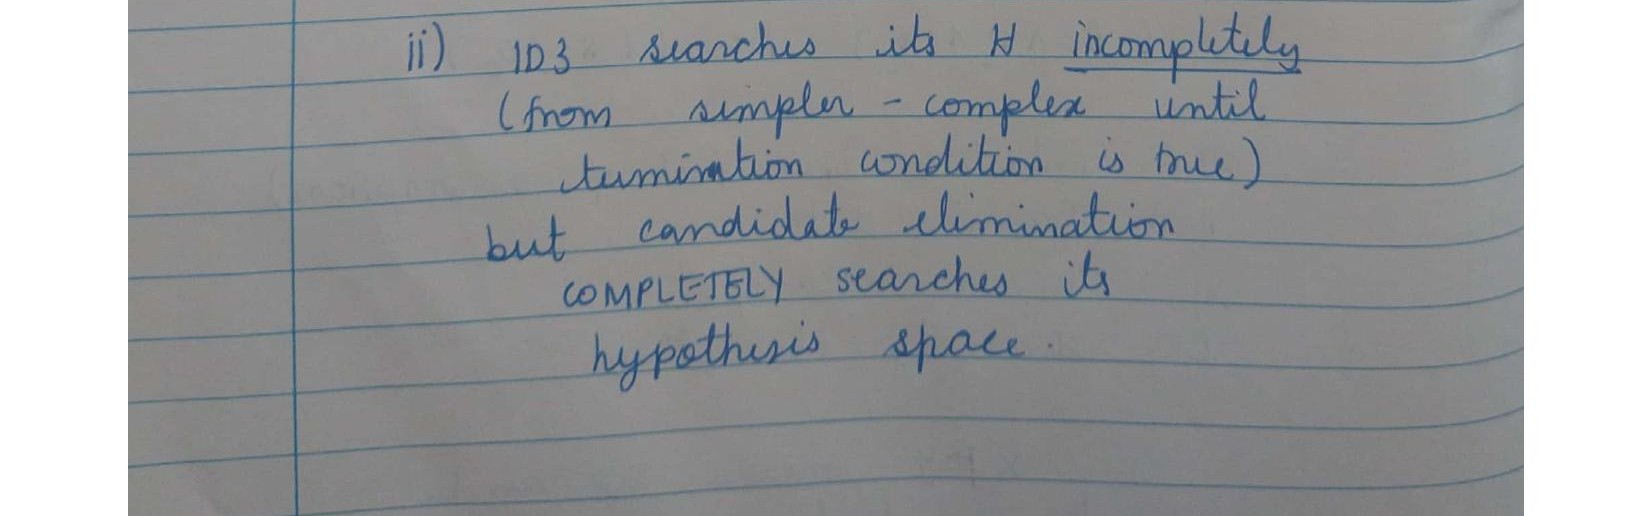 ii) ID3 searches its H incompletely
(from simpler - complex until
termination condition is true)
but candidate elimination
COMPLETELY searches its
hypothesis space.